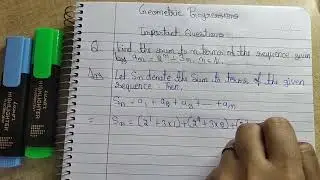 Geometric Progression
Important Questions
Q. Find the sum to n terms of the sequence given
by aₙ = 2ⁿ + 3n, n ∈ N.
Ans Let Sₙ denote the sum to terms of the given
sequence Then,
Sₙ = a₁ + a₂ + a₃ + ... + aₙ
= Sₙ = (2¹ + 3×1) + (2² + 3×2) + (2